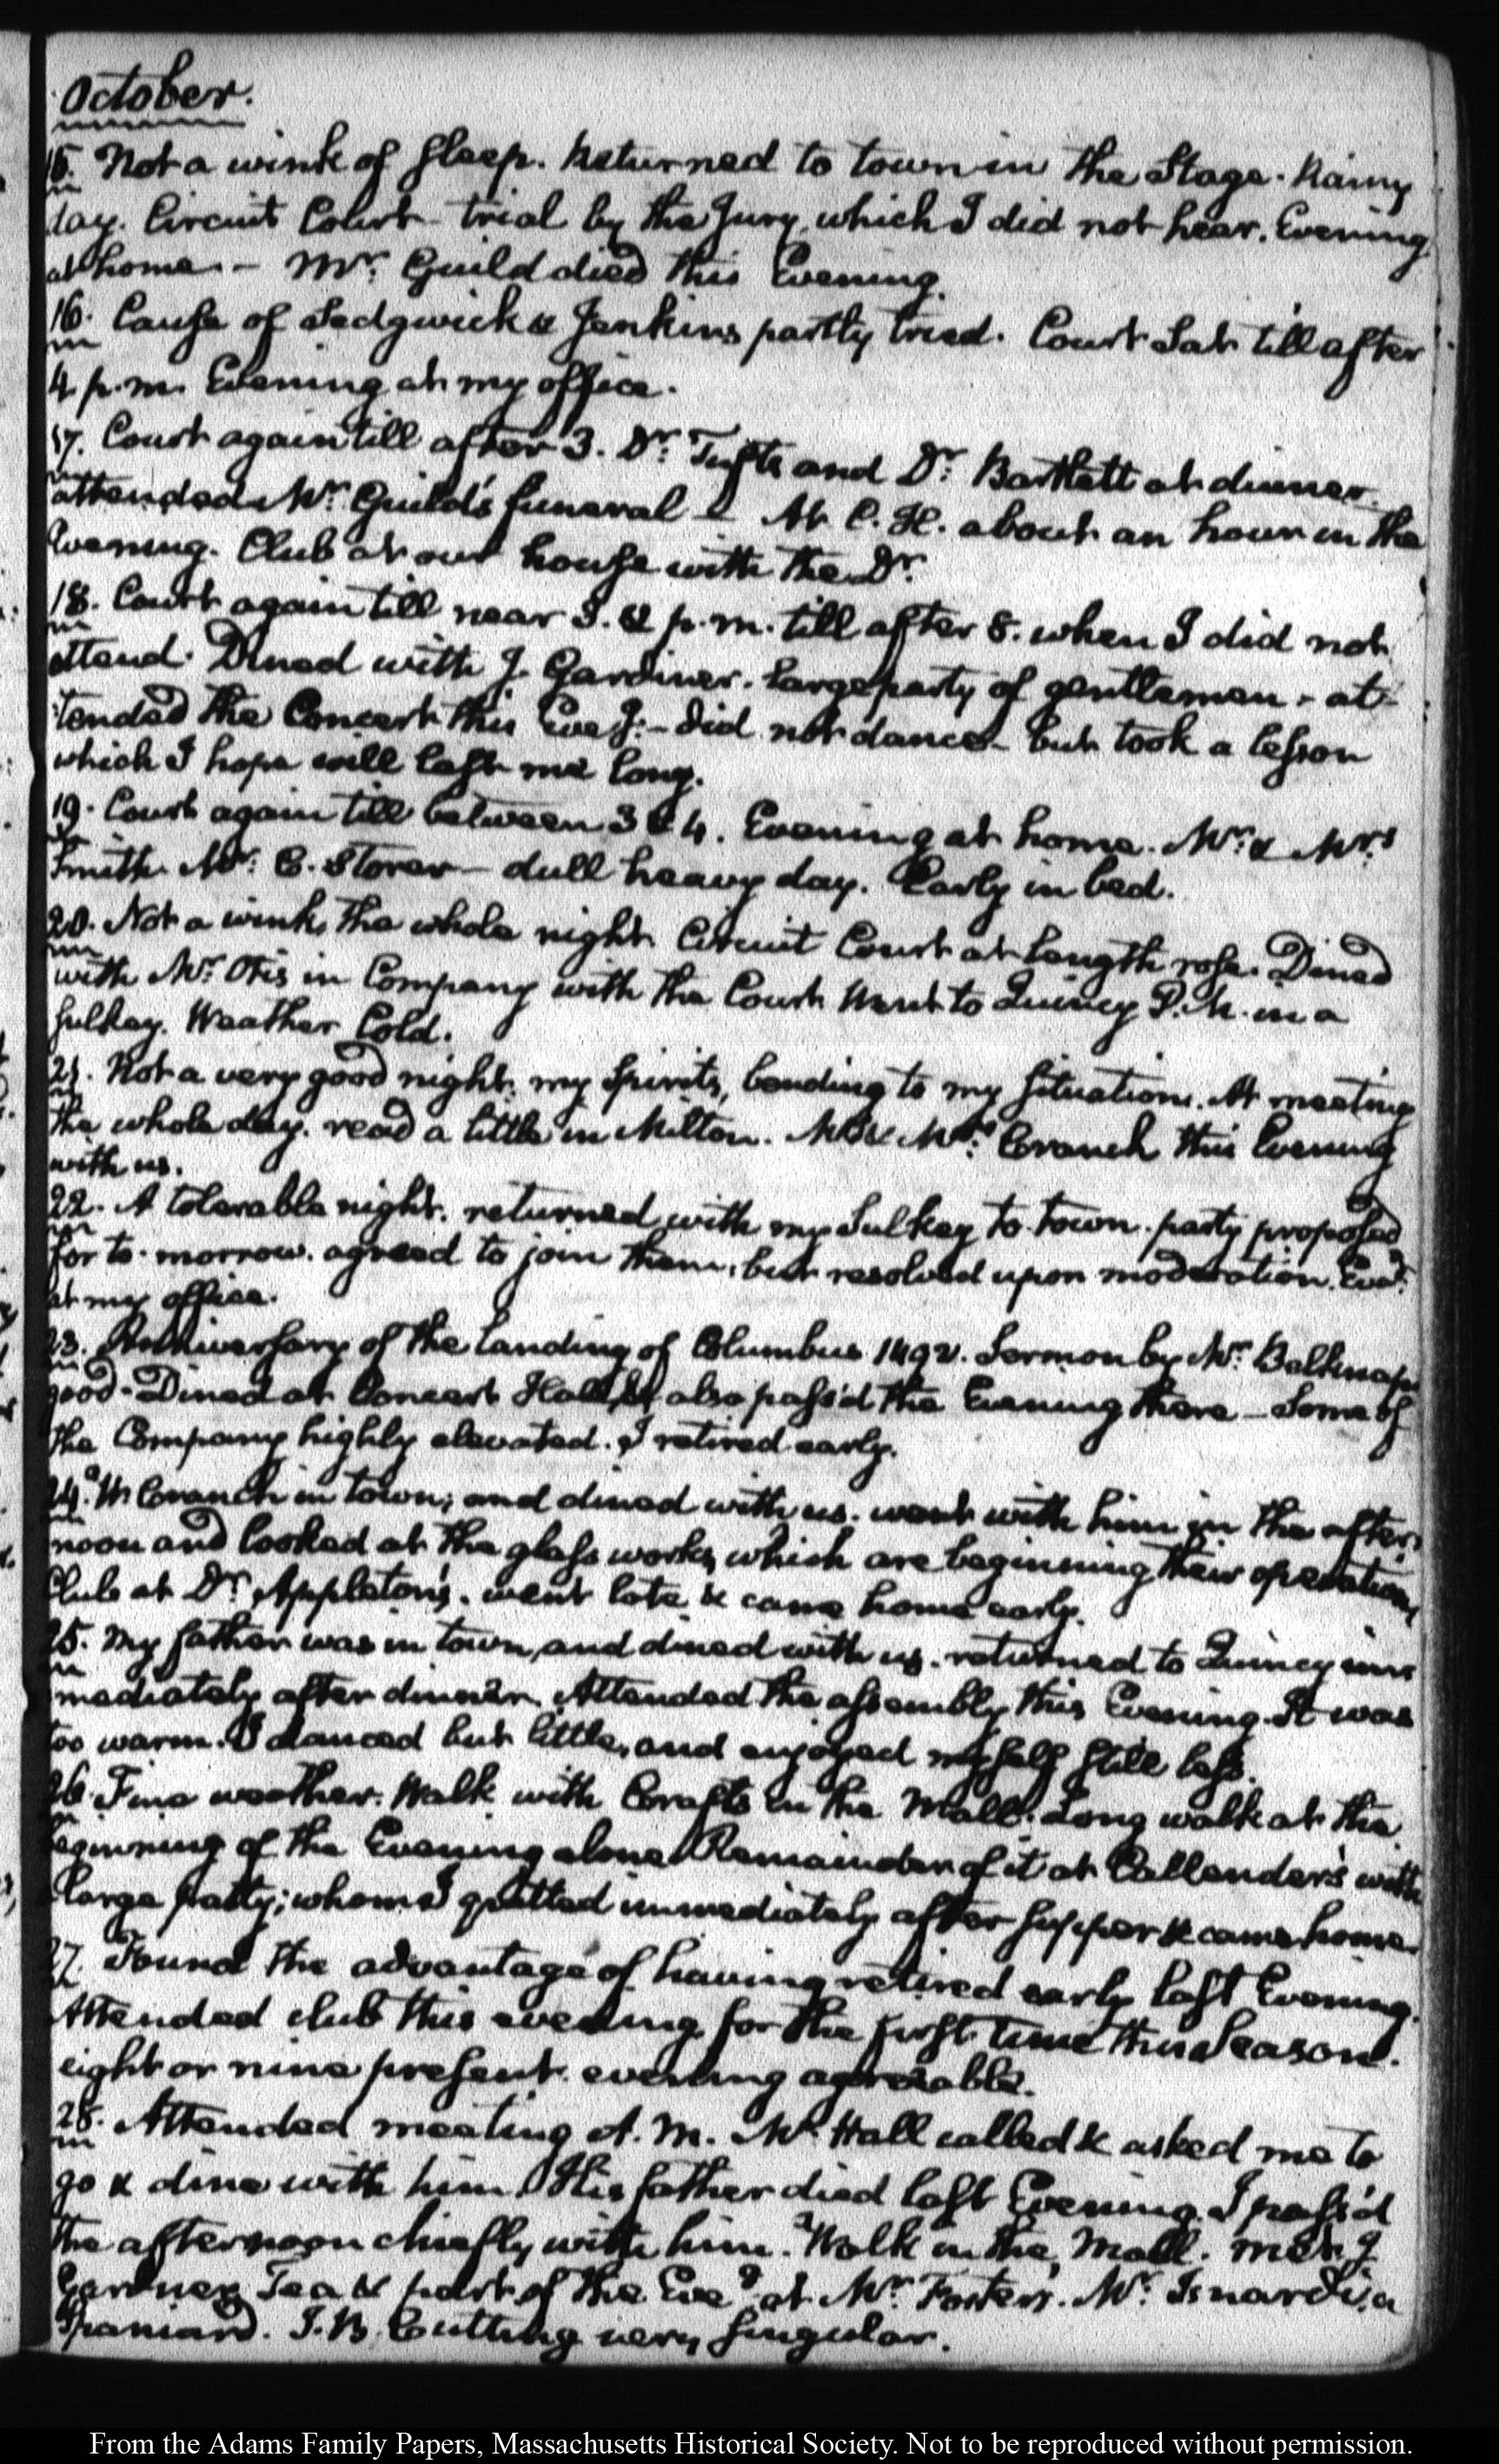 October.
15. Not a wink of sleep. Returned to town in the Stage. Rainy
day. Circuit Court trial by the Jury, which I did not hear. Evening
at home. – Mr. Guild died this Evening.
16. Cause of Sedgwick & Jenkins partly tried. Court Sat till after
4 p.m. Evening at my office.
17. Court again till after 3. Dr. Tufts and Dr. Bartlett at dinner.
attended Mr. Guild's funeral – At C. H. about an hour in the
Evening. Club at our house with the Dr.
18. Court again till near 3. & p.m. till after 8. when I did not
attend. Dined with J. Gardiner. large party of gentlemen – at-
tended the Concert this Eveg. – did not dance – but took a lesson
which I hope will last me long.
19. Court again till between 3 & 4. Evening at home. Mr. & Mrs.
Smith. Mr. C. Storer – dull heavy day. Early in bed.
20. Not a wink the whole night. Circuit Court at length rose. Dined
with Mr. Otis in Company with the Court. Went to Quincy P.M. in a
sulkey. Weather Cold.
21. Not a very good night. my Spirits, bending to my situation. At meeting
the whole day. read a little in Milton. Mr. & Mrs. Cranch this Evening
with us.
22. A tolerable night. returned with my Sulkey to town. party proposed
for to-morrow. agreed to join them, but resolved upon moderation. Eveg.
at my office.
23. Anniversary of the landing of Columbus 1492. Sermon by Mr. Belknap
good. Dined at Concert Hall, & also pass'd the Evening there – Some of
the Company highly elevated. I retired early.
24. W. Cranch in town; and dined with us. went with him in the after-
noon and looked at the glass works, which are beginning their operations,
Club at Dr. Appleton's. went late & came home early.
25. My father was in town, and dined with us. returned to Quincy im-
mediately after dinner. Attended the assembly this Evening. It was
too warm. I danced but little, and enjoyed myself still less.
26. Fine weather. Walk with Crafts in the Mall. Long walk at the
beginning of the Evening alone. Remainder of it at Callender's with
a large party; whom I quitted immediately after supper & came home.
27. Found the advantage of having retired early last Evening.
Attended club this evening for the first time this Season.
eight or nine present. evening agreeable.
28. Attended meeting A.M. Mr. Hall called & asked me to
go & dine with him. His father died last Evening. I pass'd
the afternoon chiefly with him. Walk in the Mall. met J
Gardner. Tea & part of the Eveg. at Mr. Foster's. Mr. Isnardi, a
Spaniard. J. B. Cutting very singular.
From the Adams Family Papers, Massachusetts Historical Society. Not to be reproduced without permission.